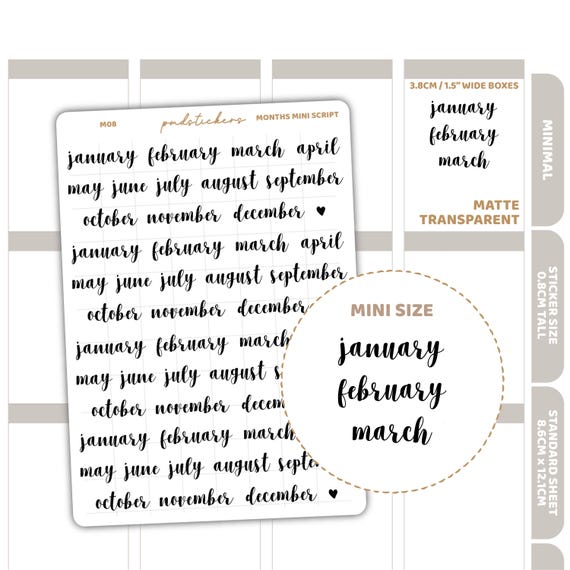 M08 pmdstickers MONTHS MINI SCRIPT
january february march april
may june july august september
october november december
january february march april
may june july august september
october november december
january february march
may june july august
october november
january february march
may june july august
october november december
3.8CM / 1.5” WIDE BOXES
january
february
march
MATTE
TRANSPARENT
MINI SIZE
january
february
march
MINIMAL
STICKER SIZE
0.8CM TALL
STANDARD SHEET
8.6CM x 12.1CM